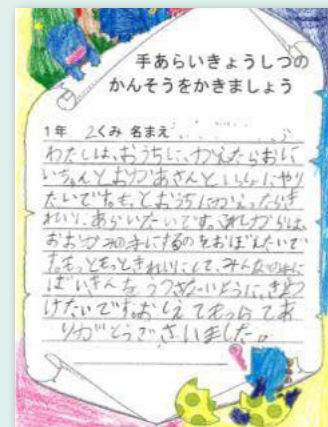 手あらいきょうしつの
かんそうをかきましょう
1年 2くみ 名まえ
わたしは、おうちに、かえったらおに
いちゃんとおかあさんといっしょにやり
たいです。も、とおうちにかえったらき
れいに、あらいたいです。これからは、
おおかみの手にするのをおぼえたいで
す。もっともっときれいにして、みんなの手に
ばいきんを、うつさないように、きをつ
けたいです。おしえてもらってあ
りがとうございました。